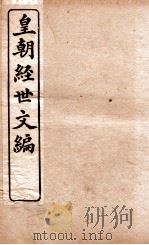 皇朝經世文編
mtoou.info